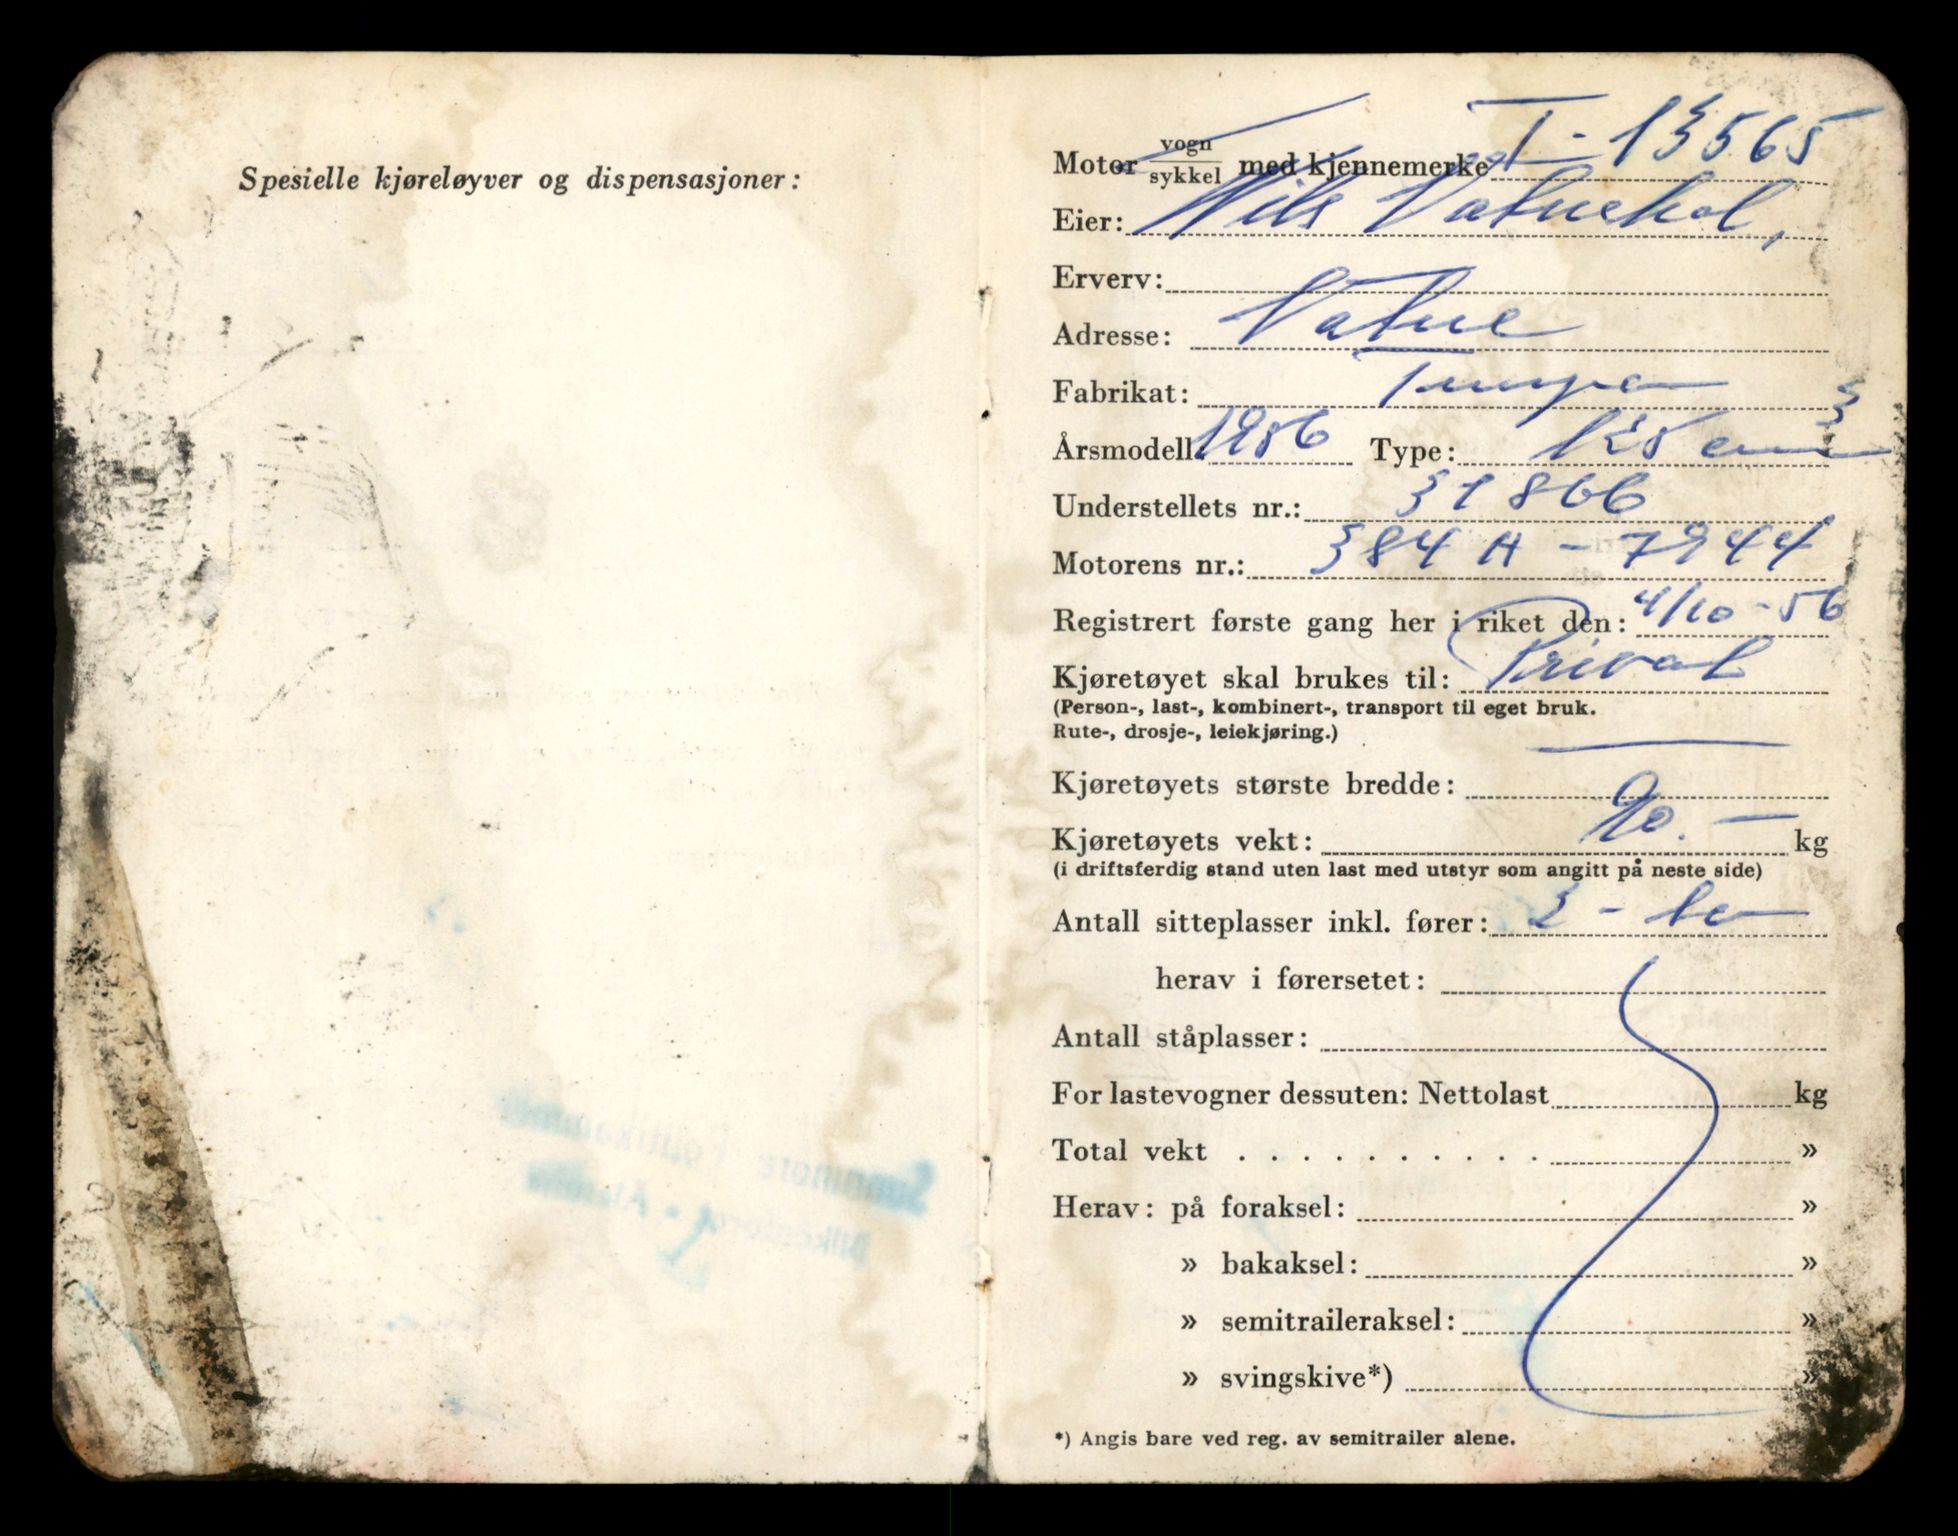 Spesielle kjøreløyver og dispensasjoner:
Motor vogn/sykkel med kjennemerke T-13565
Eier: Nils Vatnehol,
Erverv:
Adresse: Vatne
Fabrikat: Tempo
Årsmodell 1956 Type: 125 cm3
Understellets nr.: 31866
Motorens nr.: 384 H - 7944
Registrert første gang her i riket den: 4/10-56
Kjøretøyet skal brukes til: Privat
(Person-, last-, kombinert-, transport til eget bruk.
Rute-, drosje-, leiekjøring.)
Kjøretøyets største bredde:
Kjøretøyets vekt: 90.- kg
(i driftsferdig stand uten last med utstyr som angitt på neste side)
Antall sitteplasser inkl. fører: 2 - to
herav i førersetet:
Antall ståplasser:
For lastevogner dessuten: Nettolast kg
Total vekt . . . . . . . . . . »
Herav: på foraksel: »
» bakaksel: »
» semitraileraksel: »
» svingskive*) »
*) Angis bare ved reg. av semitrailer alene.